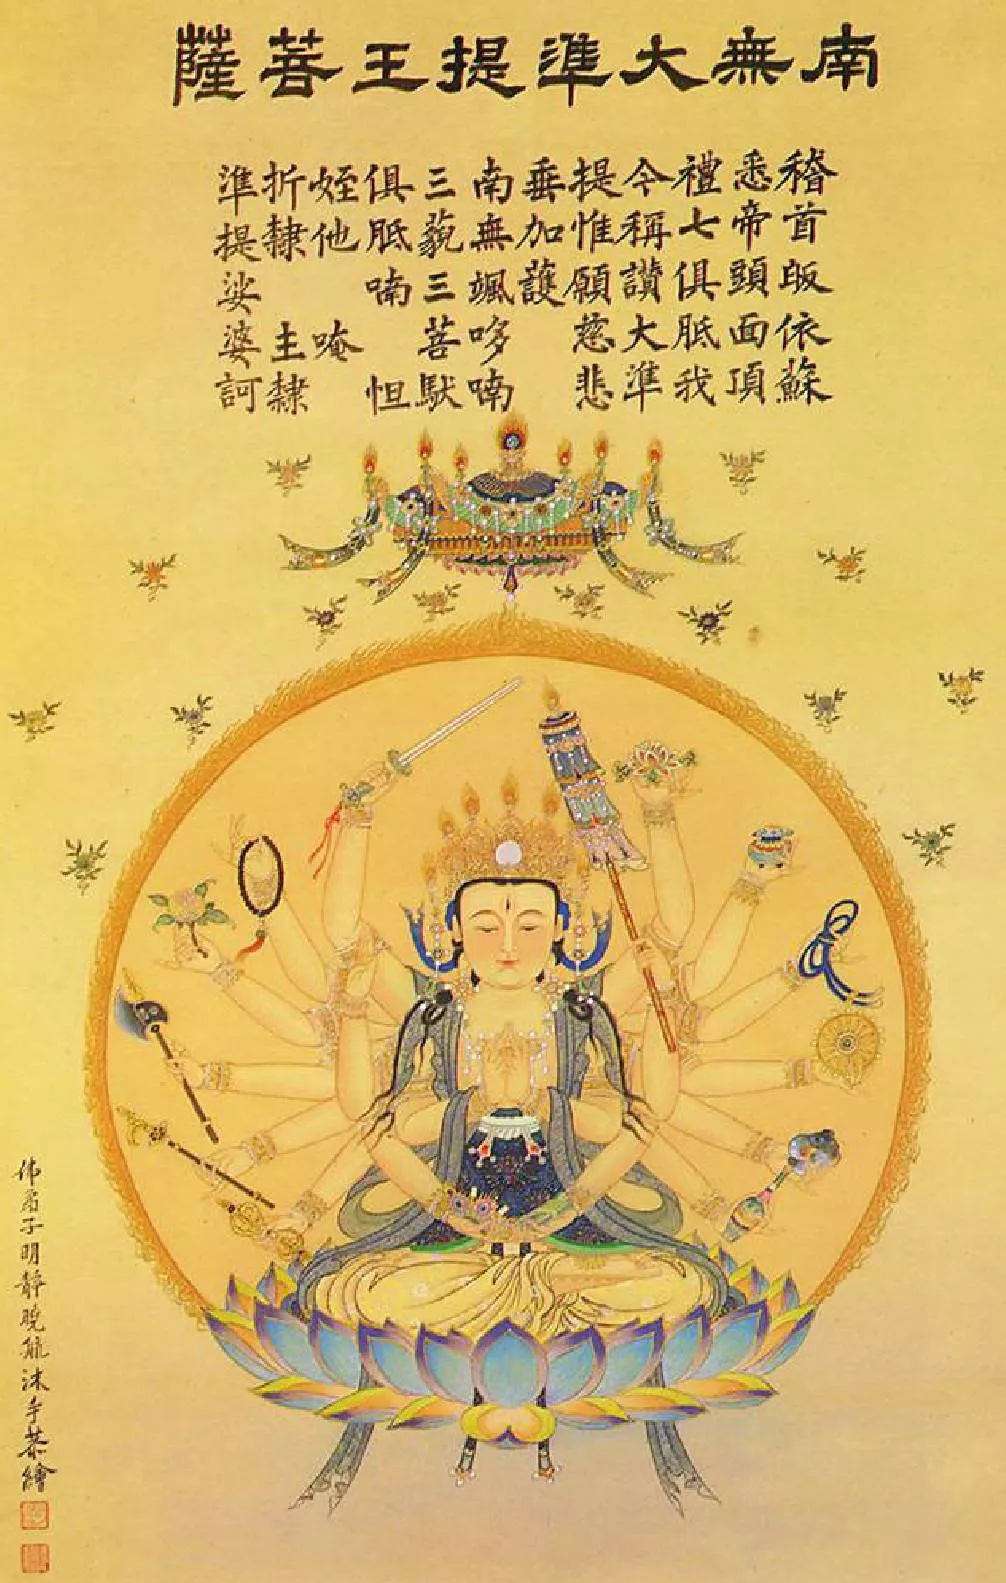 南無大準提王菩薩
稽首皈依蘇
悉帝頭面頂
禮七俱胝我
今稱讚大準
提惟願慈悲
垂加護
南無颯哆喃
三藐三菩馱
俱胝喃 怛
姪他 唵
折隸 主隸
準提娑婆訶
佛弟子明靜曉航沐手恭繪